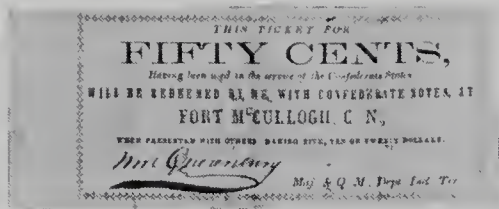 THIS TICKET FOR
FIFTY CENTS,
Having been used in the service of the Confederate States
WILL BE REDEEMED BY ME, WITH CONFEDERATE NOTES, AT
FORT McCULLOGH, C N.,
WHEN PRESENTED WITH OTHERS MAKING FIVE, TEN OR TWENTY DOLLARS.
Wm Quesenbury
Maj & Q M, Dept Ind Ter